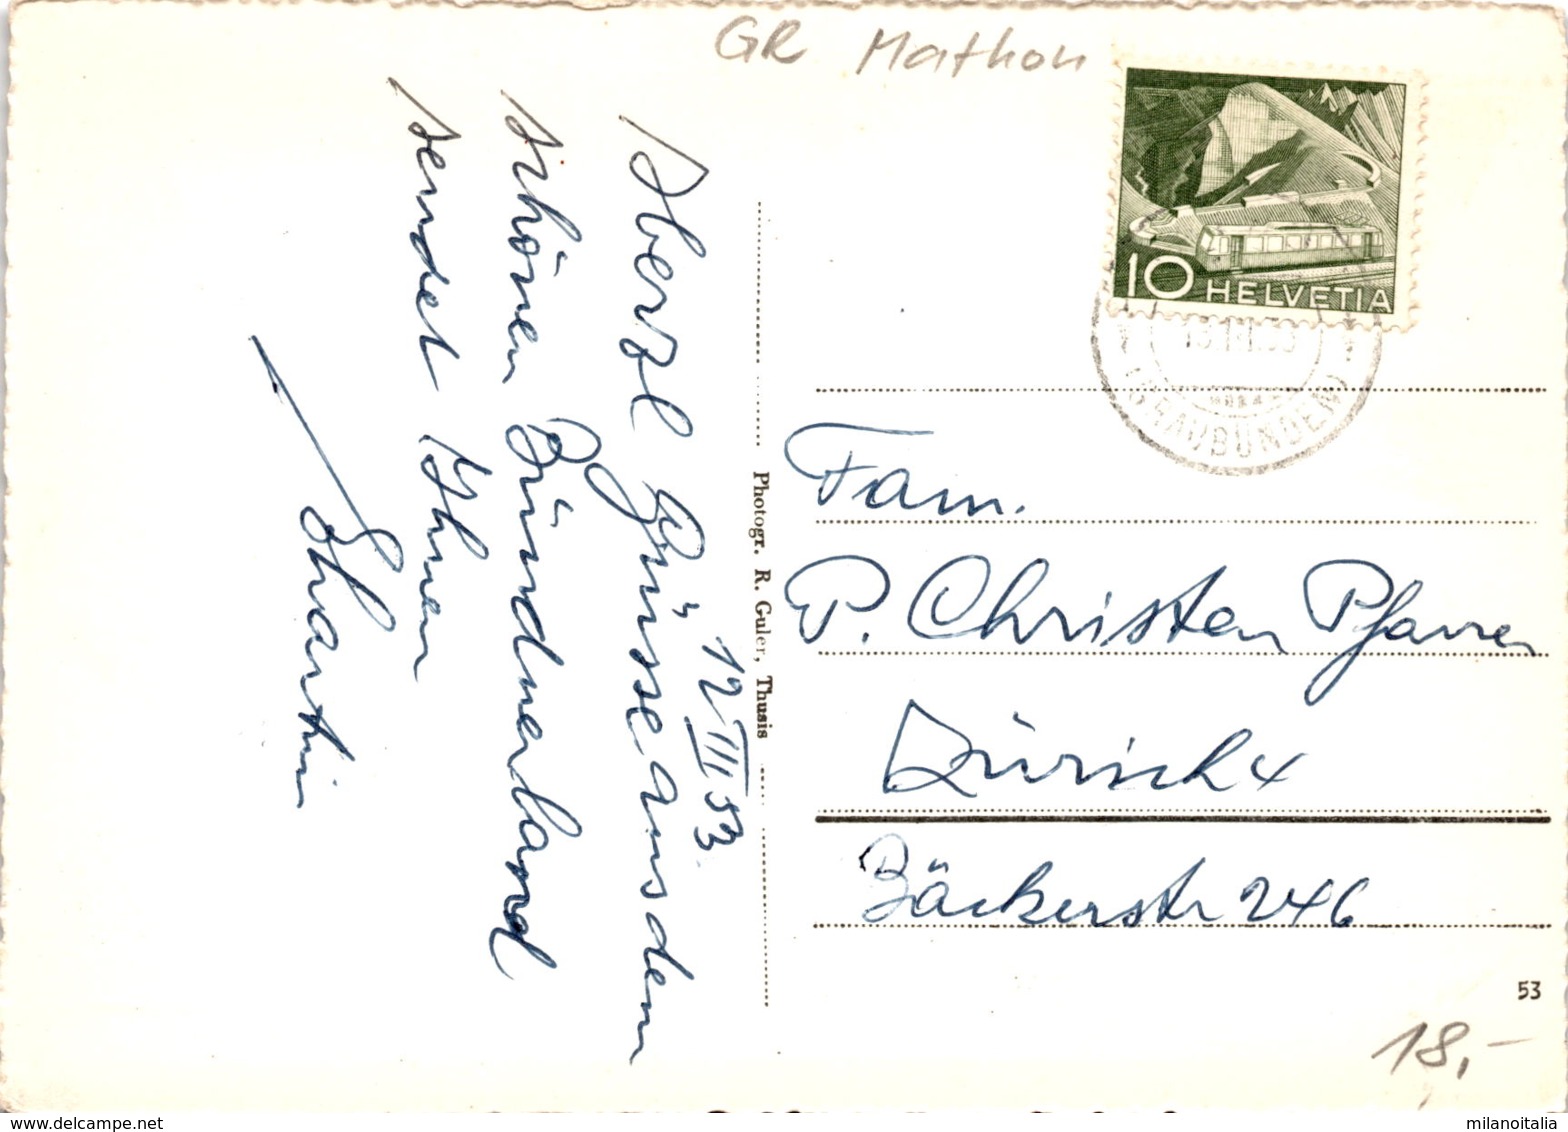 GR Mathon
10 HELVETIA
(GRAUBÜNDEN)
12 III 53
Herzl Grüsse aus dem
schönen Bündnerland
sendet Ihnen
Photogr. R. Guler, Thusis
Fam.
P. Christen Pfarrer
Zürich 4
Bäckerstr 246
53
18,-
milanoitalia